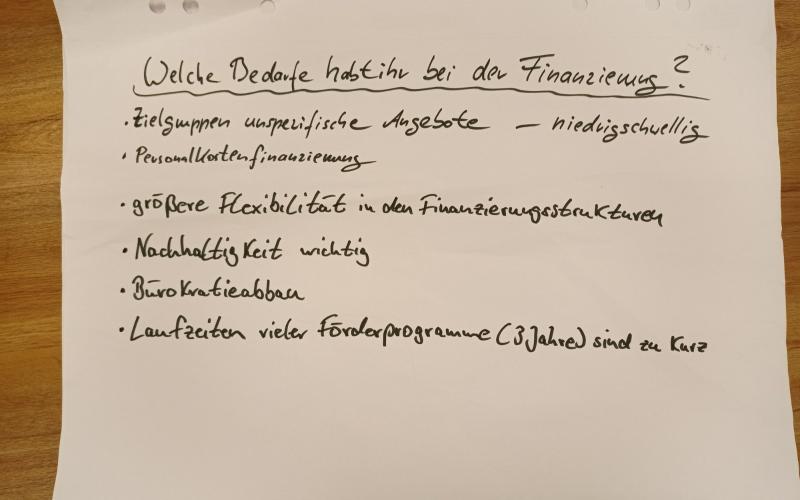 Welche Bedarfe habt ihr bei der Finanzierung?
· Zielgruppen unspezifische Angebote – niedrigschwellig
· Personalkostenfinanzierung
· größere Flexibilität in den Finanzierungsstrukturen
· Nachhaltigkeit wichtig
· Bürokratieabbau
· Laufzeiten vieler Förderprogramme (3 Jahre) sind zu kurz